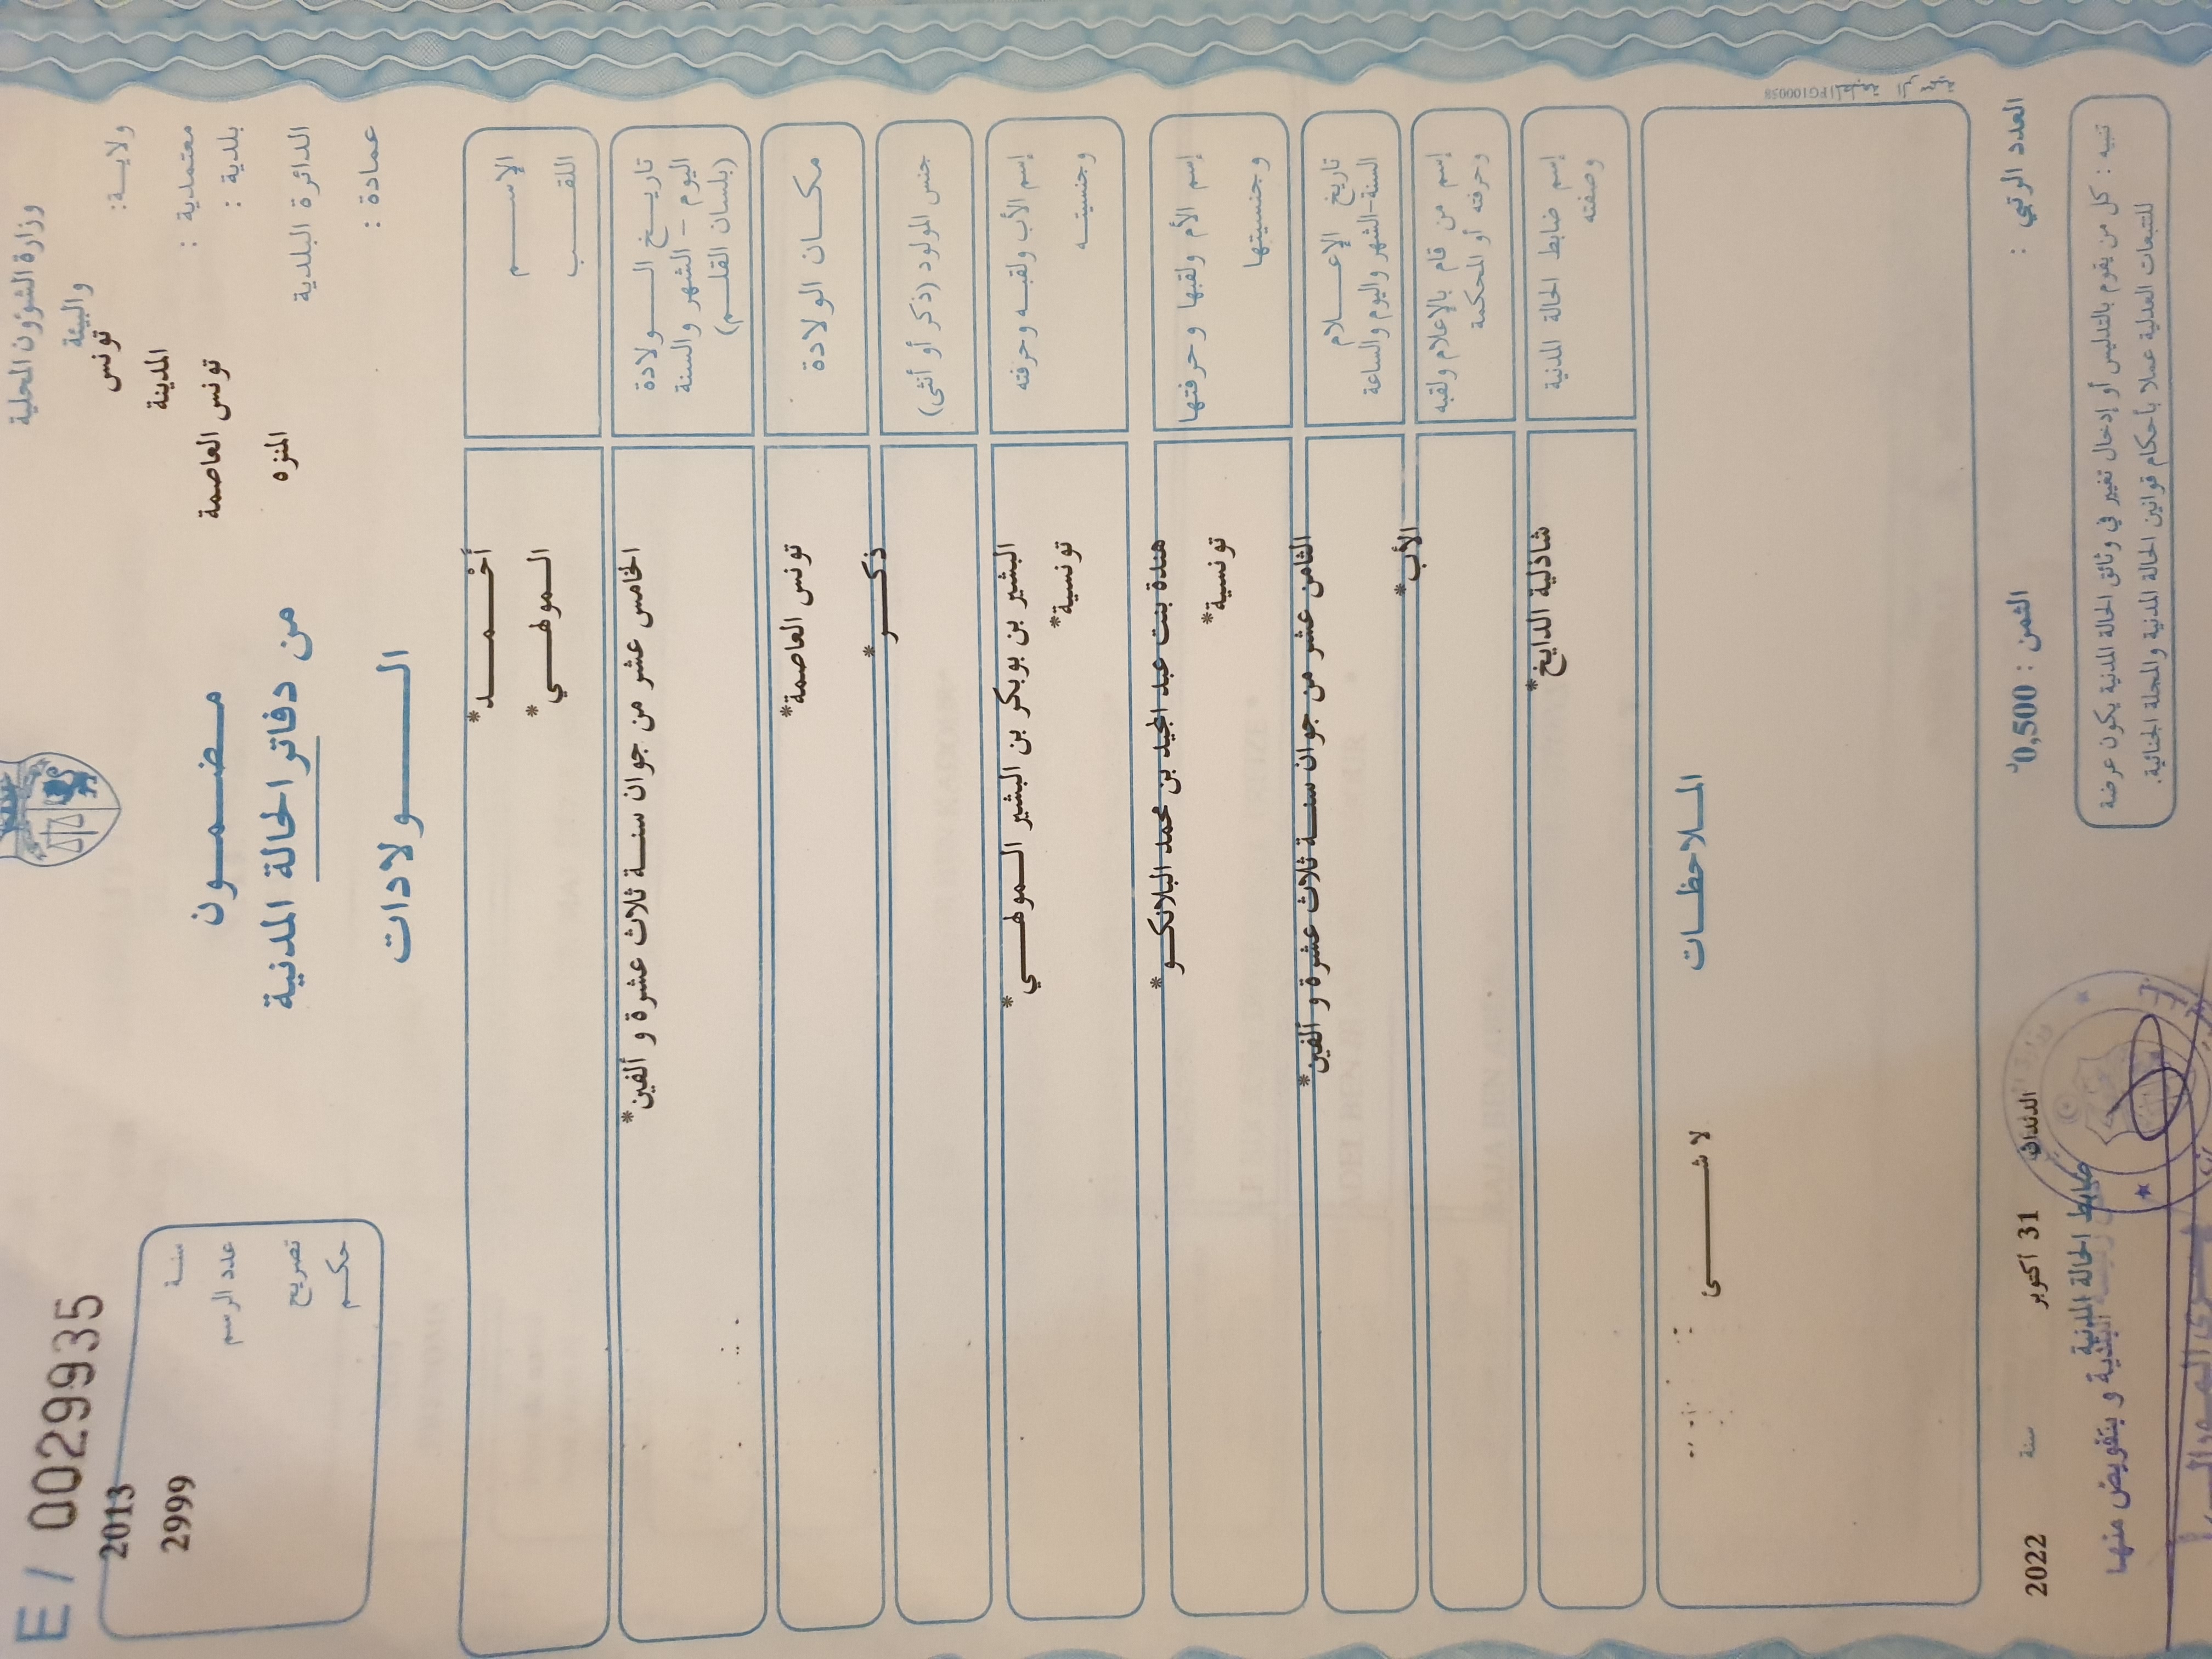 وزارة الشؤون المحلية
والبيئة
ولايـــة: تونس
معتمدية : المدينة
بلدية : تونس العاصمة
الدائرة البلدية المنزه
عمادة :
E / 0029935
سنـة 2013
عدد الرسم 2999
تصريح
حكـم
مـضـمـون
من دفاتر الحالة المدنية
الـــولادات
الإســـم أحْـمــد*
اللقـــب الـمولهـي*
تاريـــخ الـــولادة
اليوم – الشهر والسنة
(بلسان القلـم)
الخامس عشر من جوان سنـة ثلاث عشرة و ألفين*
مكـــان الولادة تونس العاصمة*
جنس المولود (ذكر أو أنثى) ذكــر*
إسم الأب ولقبـه وحرفته البشير بن بوبكر بن البشير الـمولهـي*
وجنسيتـه تونسية*
إسم الأم ولقبها وحرفتها هندة بنت عبد المجيد بن محمد البلانكـو*
وجنسيتها تونسية*
تاريخ الإعـــلام
السنة-الشهر واليوم والساعة
الثامن عشر من جوان سنـة ثلاث عشرة و ألفين*
إسم من قام بالإعلام ولقبه الأب*
وحرفته أو المحكمة
إسم ضابط الحالة المدنية شاذلية الدايخ*
وصفته
المـلاحظـات
لا شـــئ
العدد الرتبي :
الثمن : 0,500د
31 أكتوبر سنة 2022
ضابط الحالة المدنية
و بتفويض منها
تنبيه : كل من يقوم بالتدليس أو إدخال تغيير في وثائق الحالة المدنية يكون عرضة
للتتبعات العدلية عملا بأحكام قوانين الحالة المدنية والمجلة الجنائية.